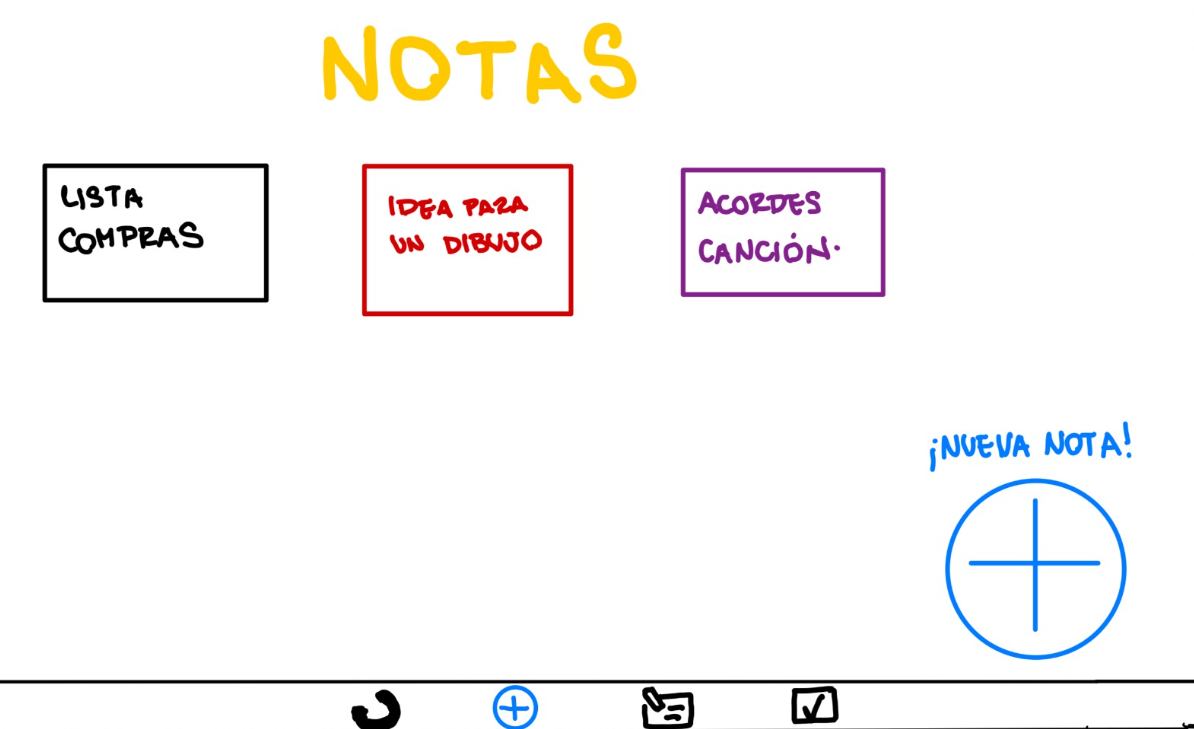 NOTAS
LISTA
COMPRAS
IDEA PARA
UN DIBUJO
ACORDES
CANCIÓN.
¡NUEVA NOTA!